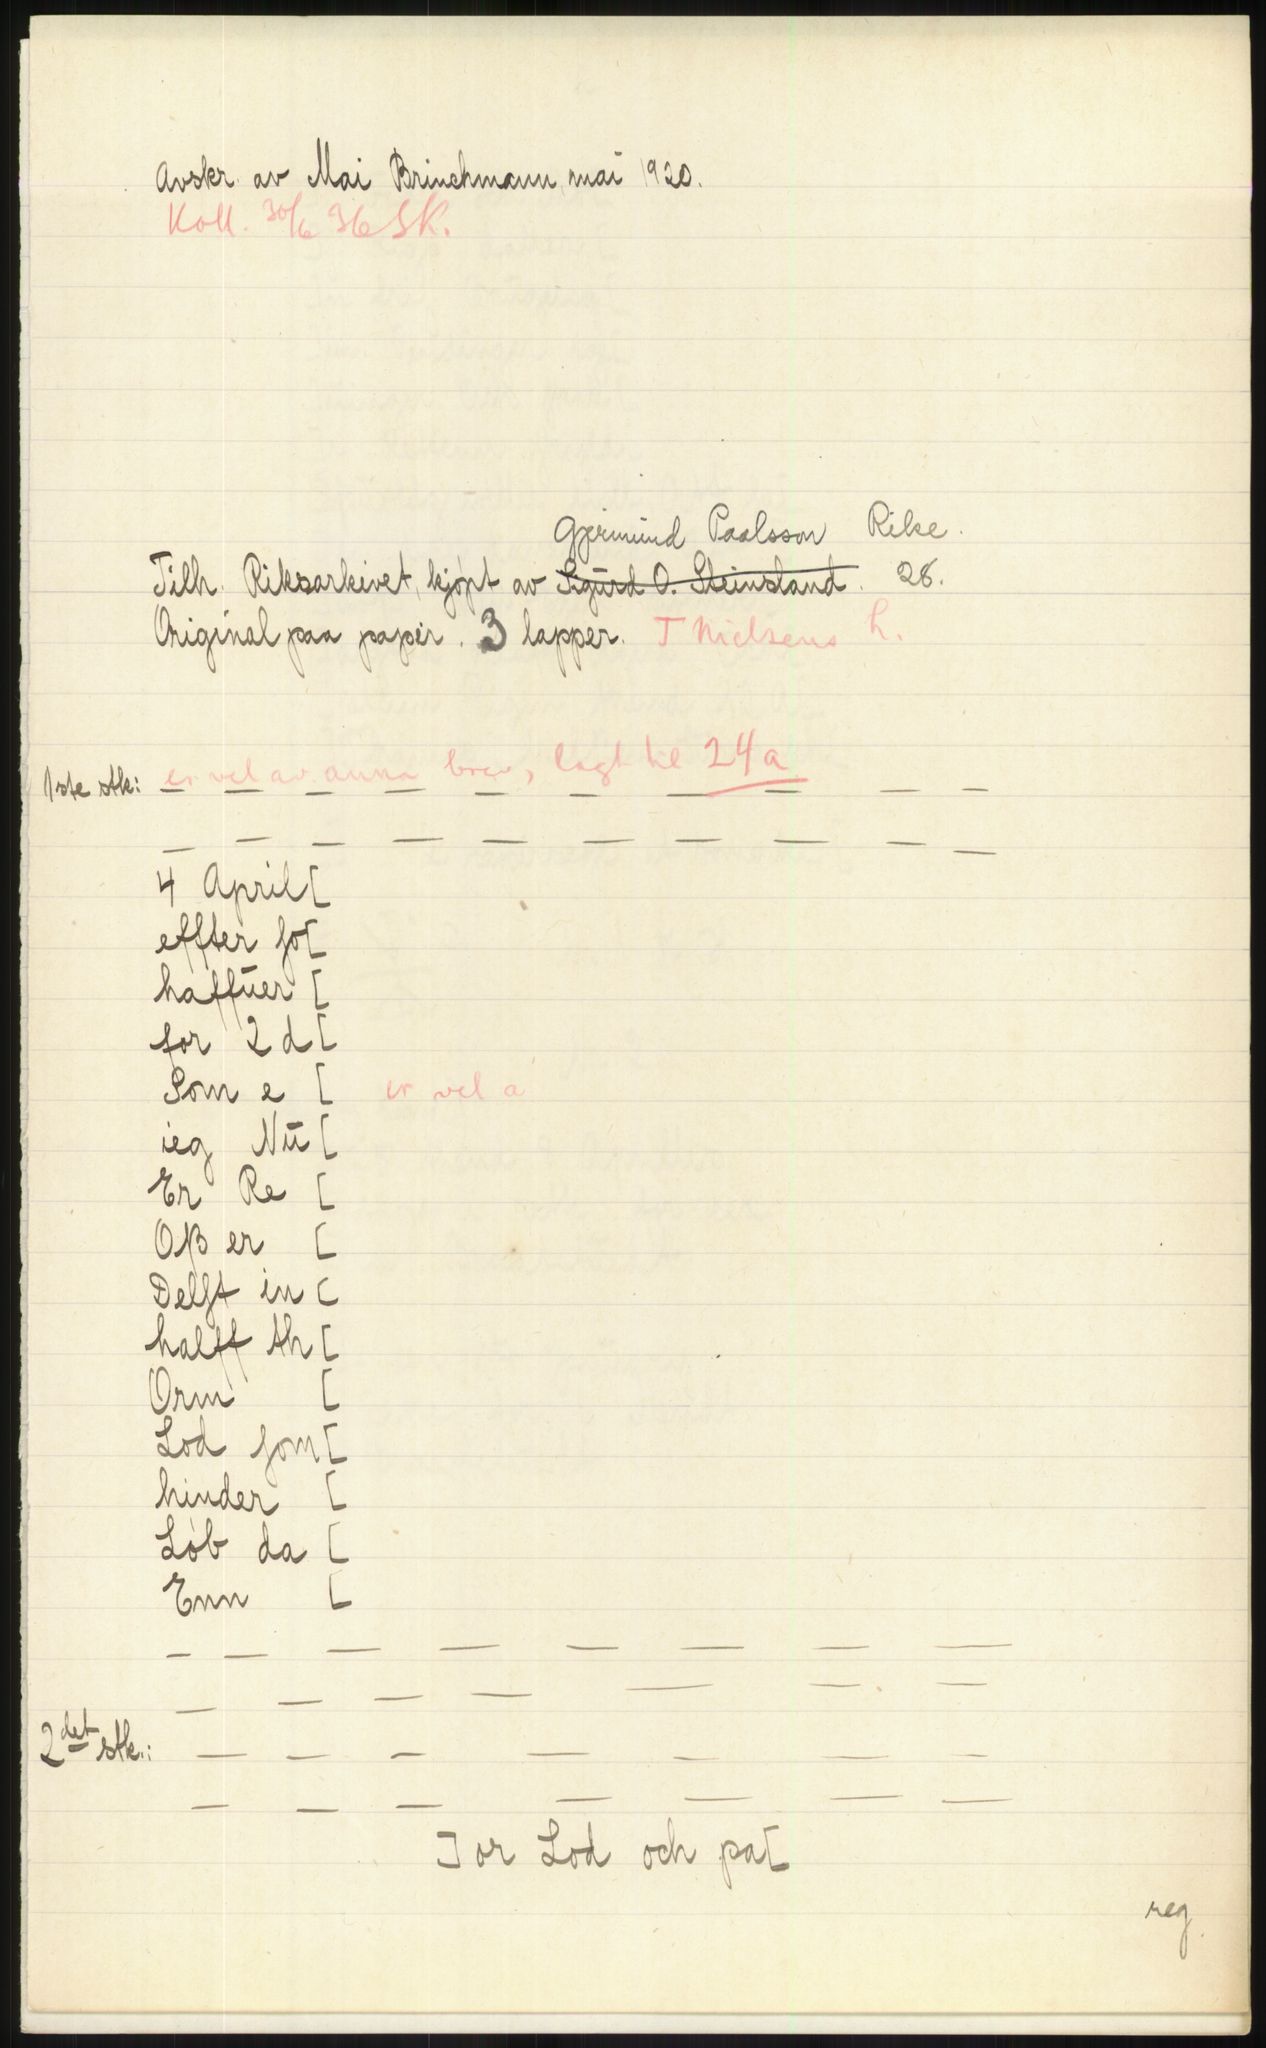 Avskr. av Mai Brinchmann, mai 1920.
Koll. 30/6 36 SK.
Gjermund Paalsson Rike.
Tilh. Riksarkivet, kjøpt av Sigurd O. Steinsland. 28.
Original paa papir. 3 lapper. T Nielsens h.
1ste stk: er vel av anna brev, lagt til 24a
— — — — — — — — — —
— — — — — — — — — —
4 April [
effter so[
haffuer [
for 2 d[
Som e [ er vel a
ieg Nu [
Er Re [
Oß er [
Delft in [
halff th [
Orm [
Lod som [
hinder [
Løb da [
Enn [
— — — — — — — —
— — — — — — —
2det stk.: — — — — — — —
— — — — — — —
] or Lod och pa[
reg.